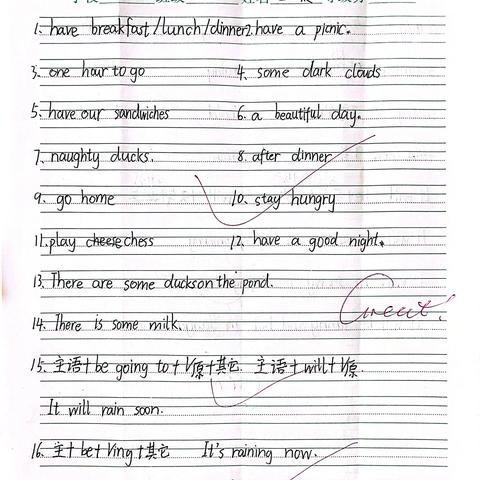 1. have breakfast/lunch/dinner 2. have a picnic.
3. one hour to go 4. some dark clouds
5. have our sandwiches 6. a beautiful day.
7. naughty ducks. 8. after dinner
9. go home 10. stay hungry
11. play cheese chess 12. have a good night.
13. There are some ducks on the pond.
14. There is some milk.
15. 主语+be going to+V原+其它. 主语+will+V原.
It will rain soon.
16. 主+be+Ving+其它 It's raining now.